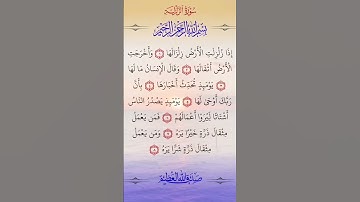 سُورَةُ الزَّلْزَلَة
بِسْمِ اللَّهِ الرَّحْمَنِ الرَّحِيمِ
إِذَا زُلْزِلَتِ الْأَرْضُ زِلْزَالَهَا ۝ وَأَخْرَجَتِ
الْأَرْضُ أَثْقَالَهَا ۝ وَقَالَ الْإِنسَانُ مَا لَهَا
۝ يَوْمَئِذٍ تُحَدِّثُ أَخْبَارَهَا ۝ بِأَنَّ
رَبَّكَ أَوْحَى لَهَا ۝ يَوْمَئِذٍ يَصْدُرُ النَّاسُ
أَشْتَاتًا لِّيُرَوْا أَعْمَالَهُمْ ۝ فَمَن يَعْمَلْ
مِثْقَالَ ذَرَّةٍ خَيْرًا يَرَهُ ۝ وَمَن يَعْمَلْ
مِثْقَالَ ذَرَّةٍ شَرًّا يَرَهُ ۝
صَدَقَ اللَّهُ الْعَظِيمُ